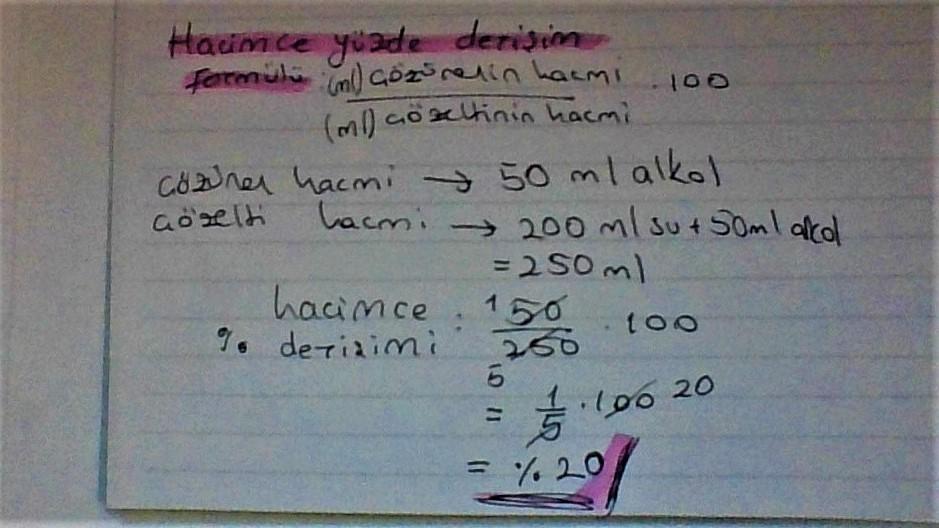 Hacimce yüzde derişim
formülü : (ml) Çözünenin hacmi . 100
(ml) Çözeltinin hacmi
Çözünen hacmi → 50 ml alkol
Çözelti hacmi → 200 ml su + 50 ml alkol
= 250 ml
hacimce : 1 50 . 100
% derişimi : 250
5
= 1/5 . 100 20
= % 20